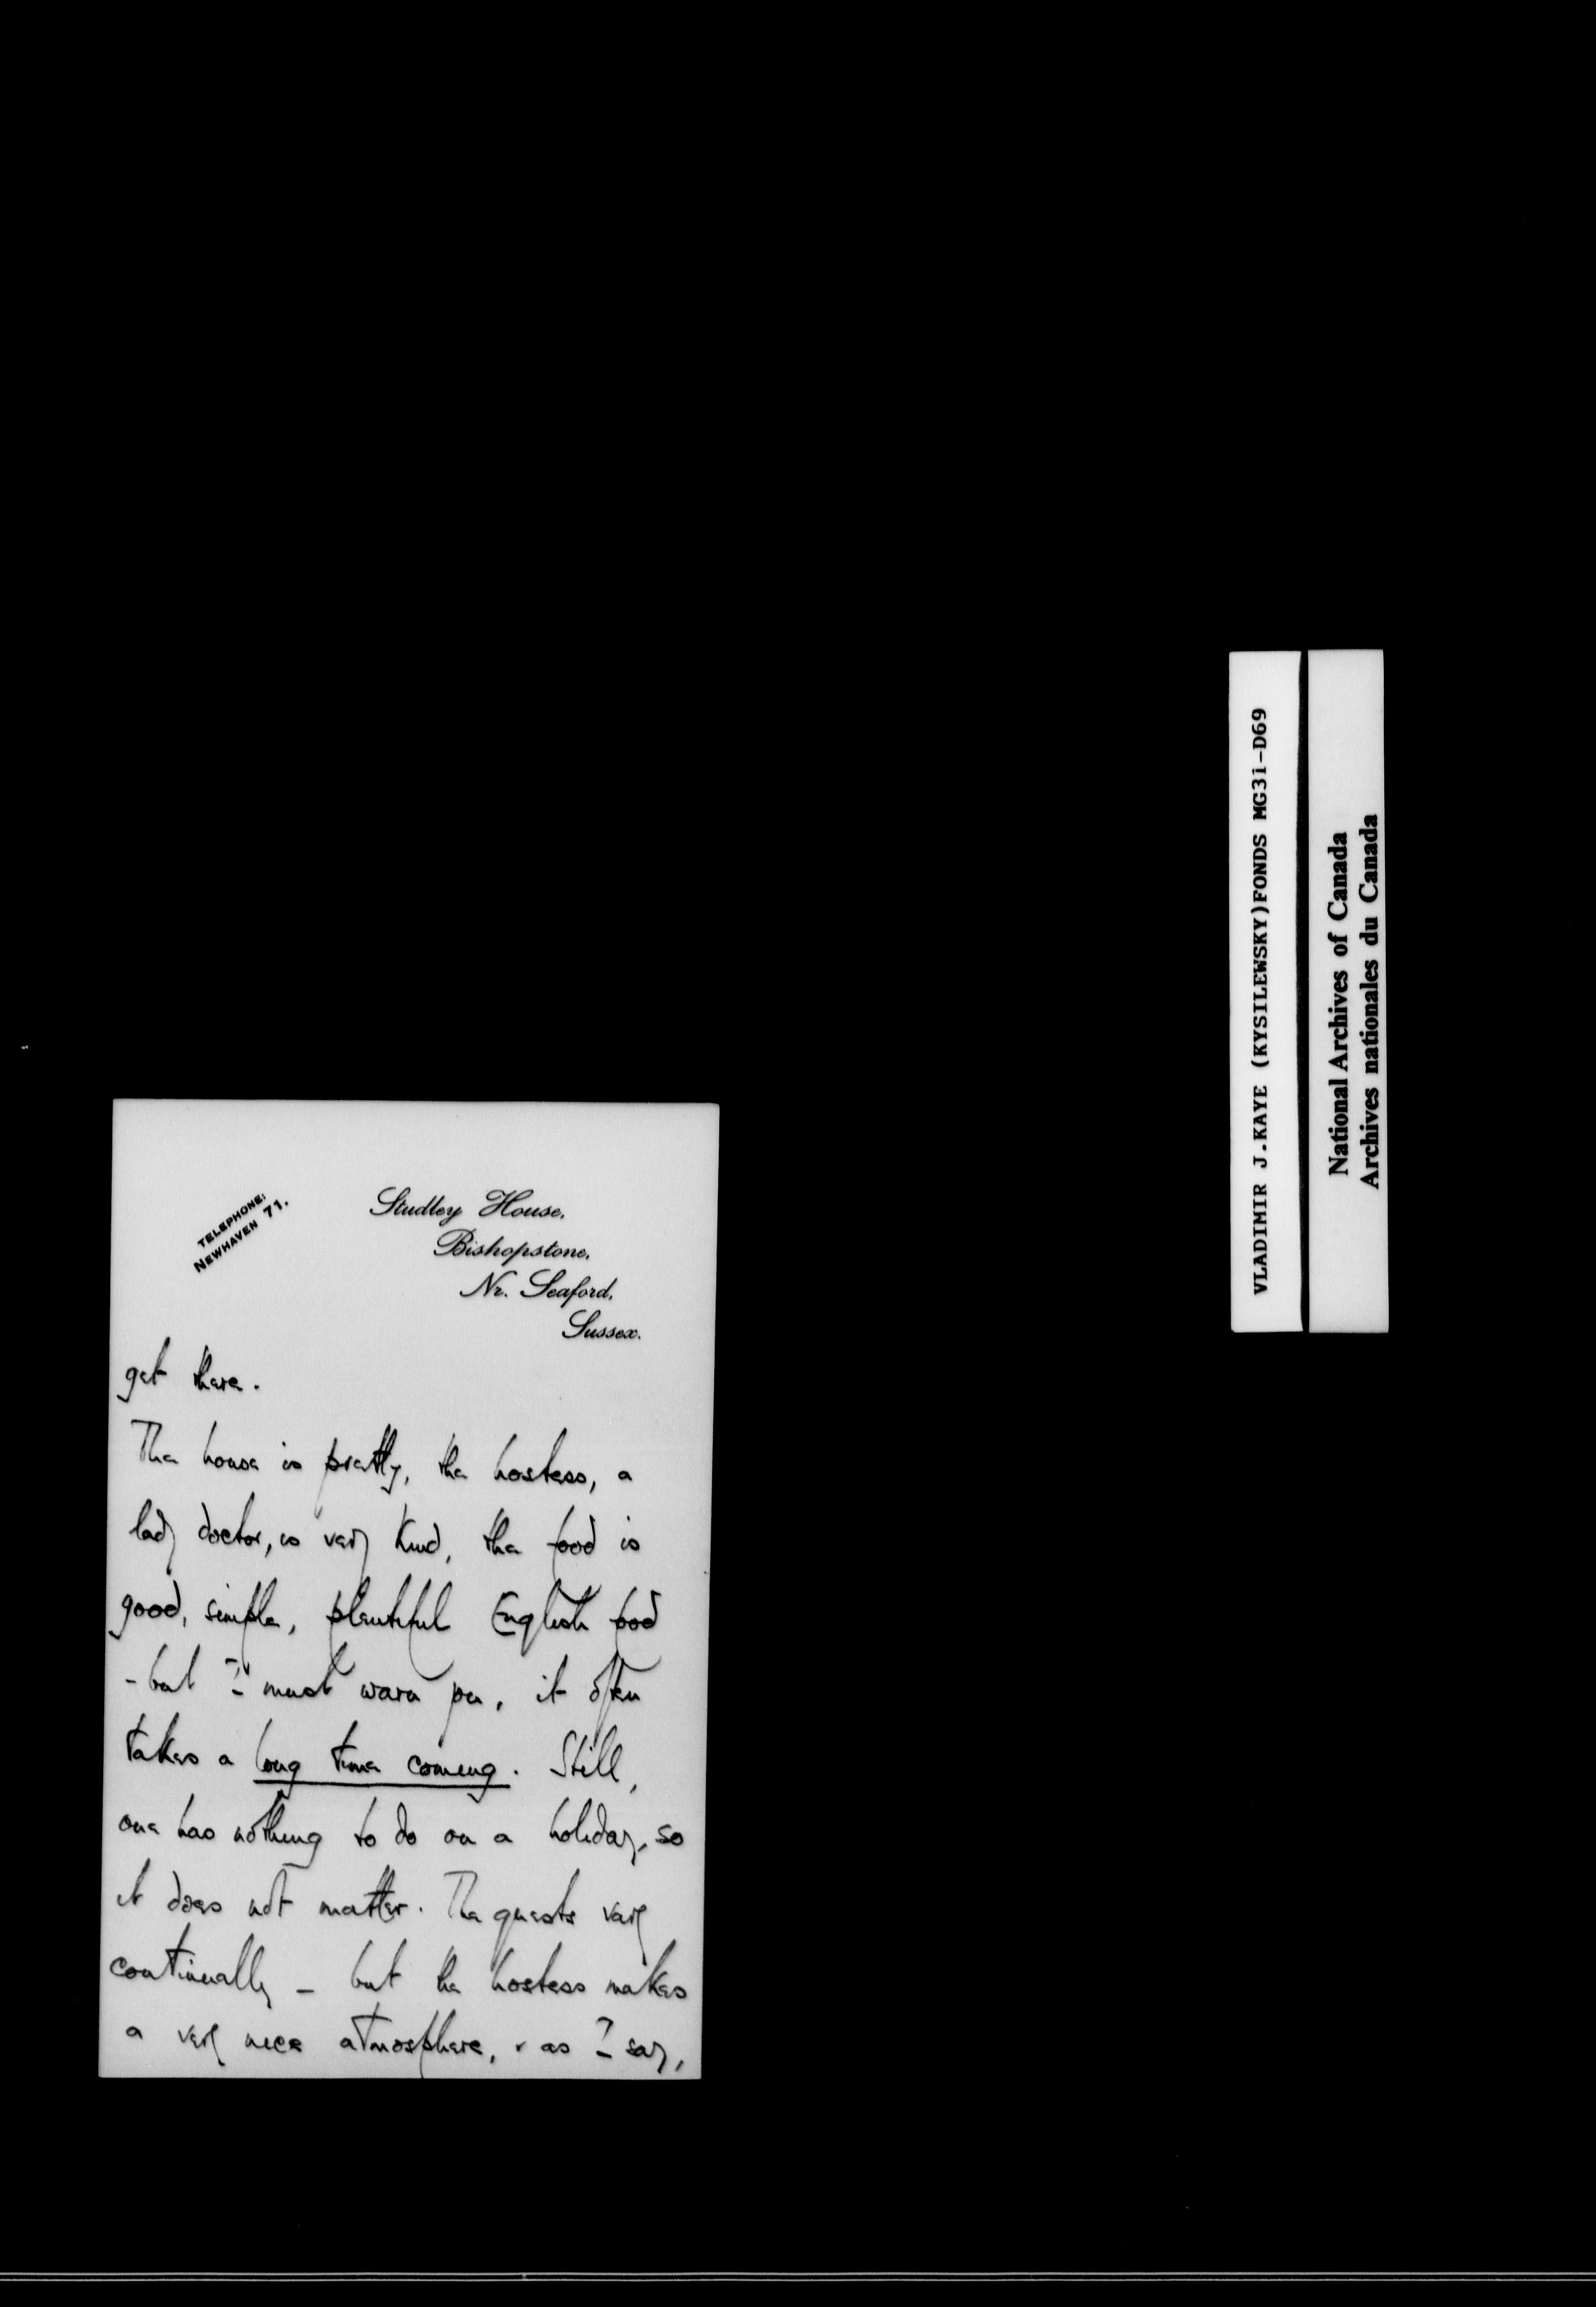 TELEPHONE:
NEWHAVEN 71.
Studley House,
Bishopstone,
Nr. Seaford,
Sussex.
get there.
The house is pretty, the hostess, a
lady doctor, is very kind, the food is
good, simple, plentiful English food
- but I must warn you, it often
takes a long time coming. Still,
one has nothing to do on a holiday, so
it does not matter. The guests vary
continually - but the hostess makes
a very nice atmosphere, & as I say,
VLADIMIR J.KAYE (KYSILEWSKY)FONDS MG31-D69
National Archives of Canada
Archives nationales du Canada